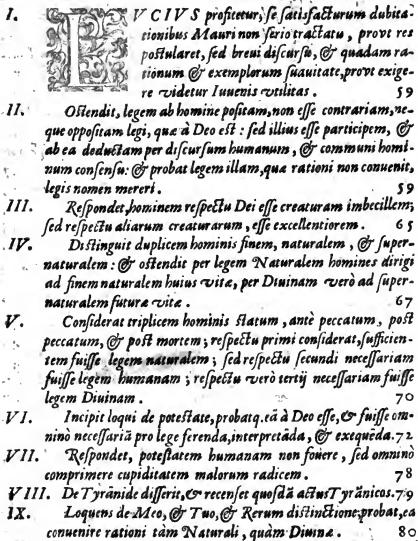 I. LVCIVS profitetur, se satisfacturum dubita-
tionibus Mauri non serio tractatu, provt res
postularet, sed breui discursu, & quadam ra-
tionum & exemplorum suauitate, provt exige-
re videtur Iuuenis vtilitas. 59
II. Ostendit, legem ab homine positam, non esse contrariam, ne-
que oppositam legi, quæ à Deo est: sed illius esse participem, &
ab ea deductam per discursum humanum, & communi homi-
num consensu: & probat legem illam, quæ rationi non conuenit,
legis nomen mereri. 59
III. Respondet, hominem respectu Dei esse creaturam imbecillem;
sed respectu aliarum creaturarum, esse excellentiorem. 65
IV. Distinguit duplicem hominis finem, naturalem, & super-
naturalem: & ostendit per legem Naturalem homines dirigi
ad finem naturalem huius vitæ, per Diuinam verò ad super-
naturalem futuræ vitæ. 67
V. Considerat triplicem hominis statum, antè peccatum, post
peccatum, & post mortem; respectu primi considerat, sufficien-
tem fuisse legem naturalem; sed respectu secundi necessariam
fuisse legem humanam; respectu verò tertij necessariam fuisse
legem Diuinam. 70
VI. Incipit loqui de potestate, probatq. eā à Deo esse, & fuisse om-
ninò necessariā pro lege ferenda, interpretāda, & exequēda. 72
VII. Respondet, potestatem humanam non fouere, sed omninò
comprimere cupiditatem malorum radicem. 78
VIII. De Tyrānide disserit, & recenset quosdā actus Tyrānicos. 79
IX. Loquens de Meo, & Tuo, & Rerum distinctione; probat, ea
conuenire rationi tàm Naturali, quàm Diuinæ. 80